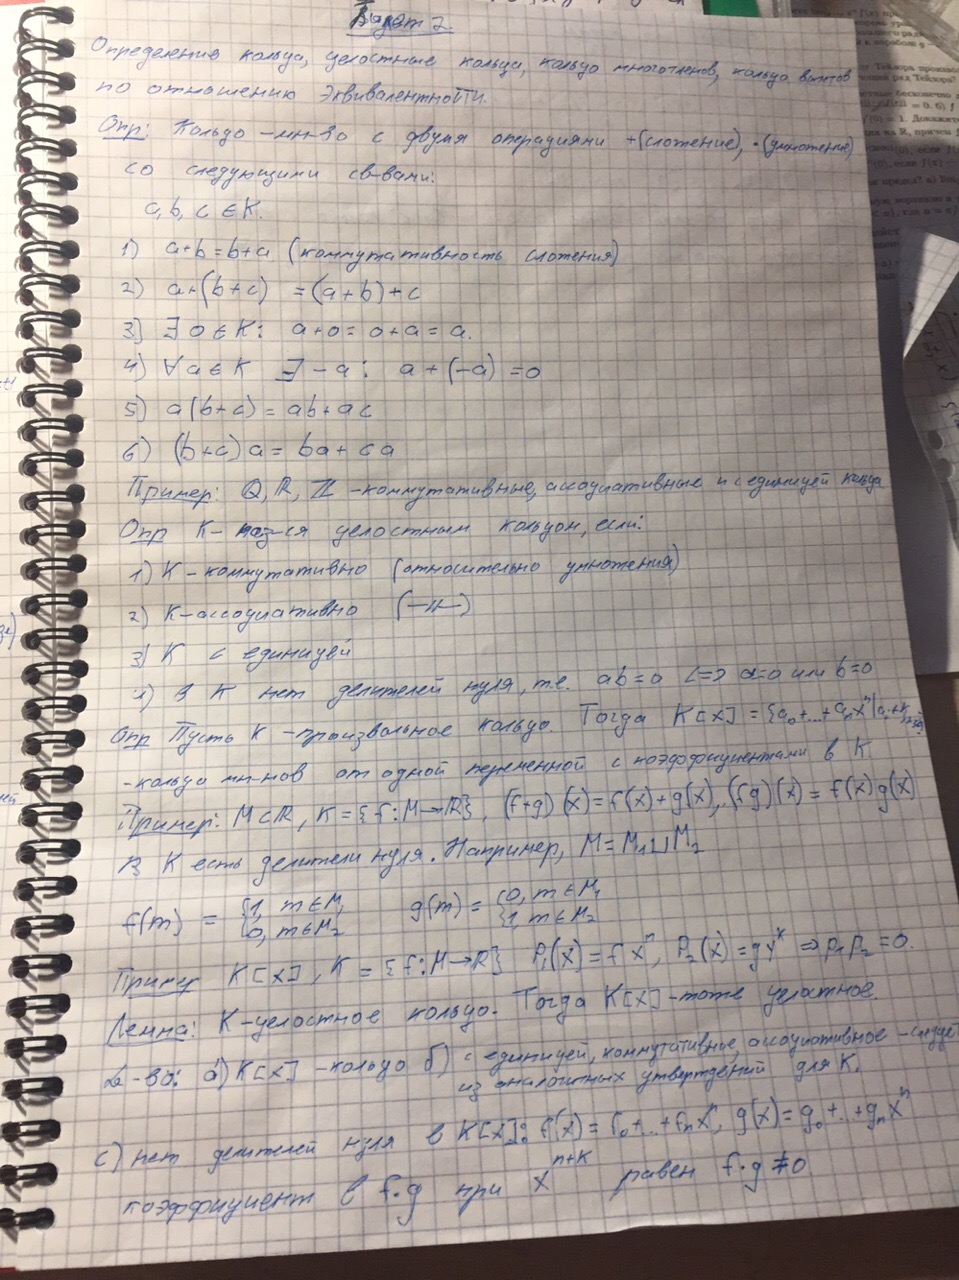 Билет 2.
Определение кольца, целостные кольца, кольцо многочленов, кольцо вычетов
по отношению эквивалентности.
Опр: Кольцо – мн-во с двумя операциями +(сложение), ·(умножение)
со следующими св-вами:
a, b, c ∈ K.
1) a+b = b+a (коммутативность сложения)
2) a+(b+c) = (a+b)+c
3) ∃ 0 ∈ K: a+0 = 0+a = a.
4) ∀a ∈ K ∃ -a: a+(-a) = 0
5) a(b+c) = ab+ac
6) (b+c)a = ba+ca
Пример: Q, R, Z – коммутативные, ассоциативные и с единицей кольца
Опр K – наз-ся целостным кольцом, если:
1) K – коммутативно (относительно умножения)
2) K – ассоциативно (—//—)
3) K с единицей
4) В K нет делителей нуля, т.е. ab=0 <=> a=0 или b=0
Опр Пусть K – произвольное кольцо. Тогда K[x] = {a₀+...+aₙxⁿ|
- кольцо мн-нов от одной переменной с коэффициентами в K.
Пример: M⊂R, K = {f: M→R}, (f+g)(x) = f(x)+g(x), (fg)(x) = f(x)g(x)
В K есть делители нуля. Например, M = M₁⊔M₂
f(m) = {1, m∈M₁ g(m) = {0, m∈M₁
{0, m∈M₂ {1, m∈M₂
Пример K[x], K = {f: M→R} P₁(x) = f xⁿ, P₂(x) = g yᵏ ⇒ P₁P₂ = 0.
Лемма: K – целостное кольцо. Тогда K[x] – тоже целостное.
Д-во: а) K[x] – кольцо б) с единицей, коммутативное, ассоциативное – следует
из аналогичных утверждений для K.
с) нет делителей нуля в K[x]: f(x) = f₀+..+fₙxⁿ, g(x) = g₀+..+gₙxⁿ
коэффициент в f·g при xⁿ⁺ᵏ равен f·g ≠ 0